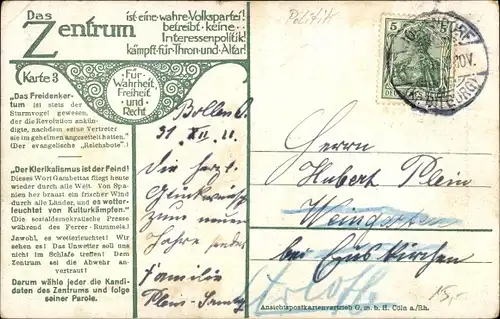 Das
Zentrum
ist eine wahre Volkspartei!
betreibt keine
Interessenpolitik!
kämpft für Thron und Altar!
Karte 3
Für
Wahrheit,
Freiheit
und
Recht
„Das Freidenker-
tum ist stets der
Sturmvogel gewesen,
der die Revolution ankün-
digte, nachdem seine Vertreter
sie im geheimen angezettelt hatten."
(Der evangelische „Reichsbote".)
„Der Klerikalismus ist der Feind!
Dieses Wort Gambettas fliegt heute
wieder durch alle Welt. Von Spa-
nien her braust ein frischer Wind
durch alle Länder, und es wetter-
leuchtet von Kulturkämpfen."
(Die sozialdemokratische Presse
während des Ferrer-Rummels.)
Jawohl, es wetterleuchtet! Wir
sehen es! Das Unwetter soll uns
nicht im Schlafe treffen! Dem
Zentrum sei die Abwehr an-
vertraut!
Darum wähle jeder die Kandi-
daten des Zentrums und folge
seiner Parole.
31 XII 11
Die herzl.
Glückwünsche
zum neuen
Jahre sendet
Familie
Plein
Politik
5
5
Herrn
Hubert Plein
Weingarten
bei Euskirchen
15,-
Ansichtspostkartenvertrieb G. m. b. H. Cöln a./Rh.